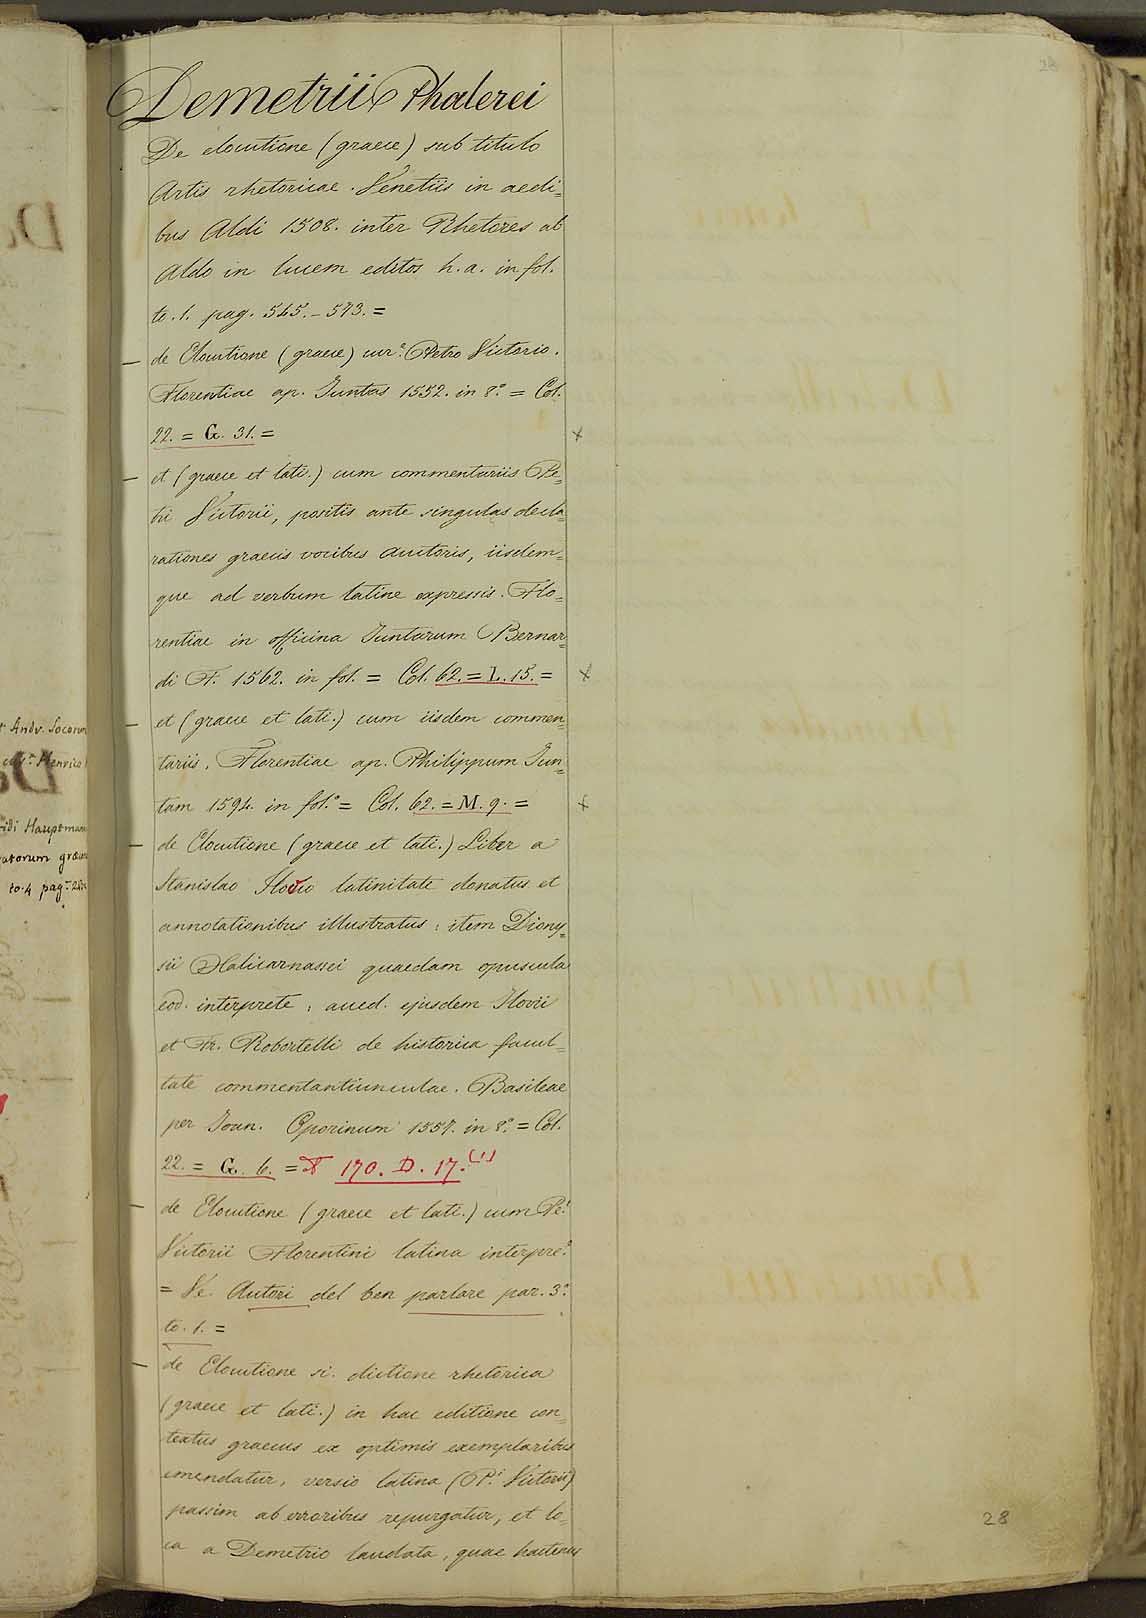 28
Demetrii Phalerei
De elocutione (graece) sub titulo
Artis rhetoricae. Venetiis in aedi=
bus Aldi 1508. inter Rhetores ab
Aldo in lucem editos h. a. in fol.
to. 1. pag. 545.-573. =
— de Elocutione (graece) cur.ᵉ Petro Victorio.
Florentiae ap. Juntas 1552. in 8.º = Col.
22. = G. 31. = x
— et (graece et lati.) cum commentariis Pe=
tri Victorii, positis ante singulas decla=
rationes graecis vocibus auctoris, iisdem=
que ad verbum latine expressis. Flo=
rentiae in officina Juntarum Bernar=
di F. 1562. in fol. = Col. 62. = L. 15. = x
— et (graece et lati.) cum iisdem commen=
tariis. Florentiae ap. Philippum Jun=
tam 1594. in fol.º = Col. 62. = M. 9. = x
— de Elocutione (graece et lati.) Liber a
Stanislao Ilovio latinitate donatus et
annotationibus illustratus: item Diony=
sii Halicarnassei quaedam opuscula
eod. interprete: acced. ejusdem Ilovii
et Fr. Robortelli de historica facul=
tate commentantiunculae. Basileae
per Joan. Oporinum 1557. in 8.º = Col.
22. = G. 6. = 170. D. 17. (1)
— de Elocutione (graece et lati.) cum Pe.ⁱ
Victorii Florentini latina interpre.ᵉ
= Ve. Autori del ben parlare par. 3.ª
to. 1. =
— de Elocutione si. dictione rhetorica
(graece et lati.) in hac editione con=
textus graecus ex optimis exemplaribus
emendatur, versio latina (P.ⁱ Victorii)
passim ab erroribus repurgatur, et lo=
ca a Demetrio laudata, quae hactenus
28
Andr. Socorum
Henrico
Hauptmann
to. 4 pag.